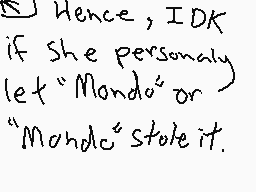 Hence, IDK
if she personaly
let "Mondo" or
"Mondo" stole it.